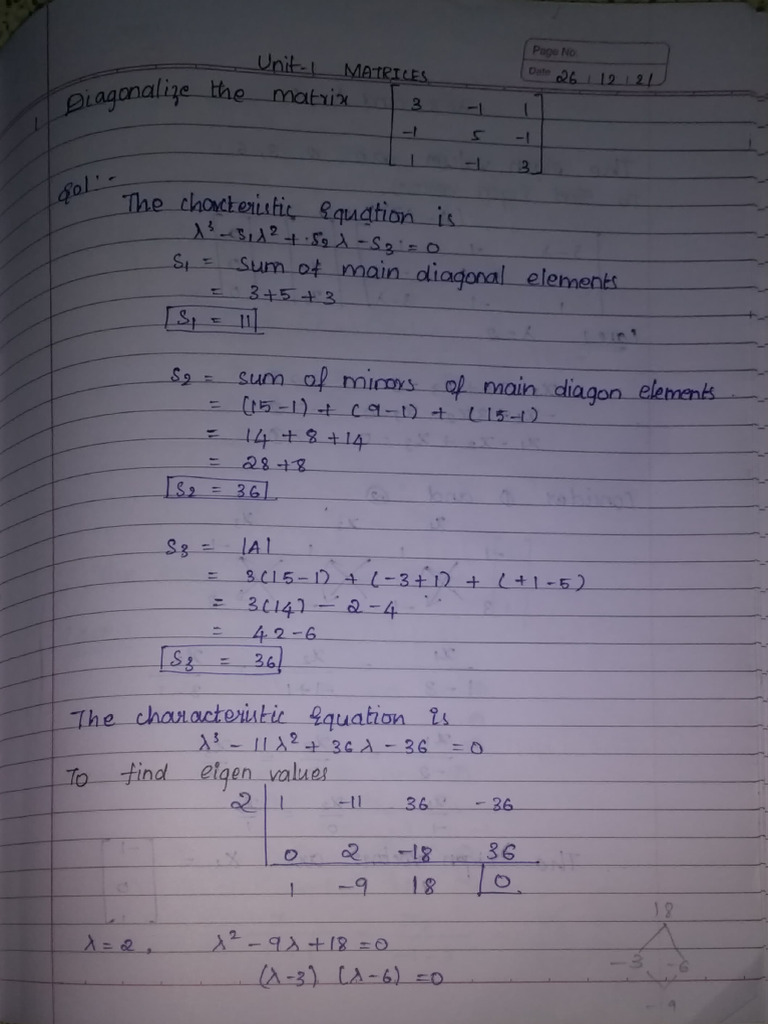 Page No.
Date 26 12 21
Unit-1 MATRICES
Diagonalize the matrix [3 -1 1
-1 5 -1
1 -1 3]
Sol:-
The charcteristic Equation is
λ³ - S₁λ² + S₂λ - S₃ = 0
S₁ = sum of main diagonal elements
= 3+5+3
S₁ = 11
S₂ = sum of minors of main diagon elements
= (15-1) + (9-1) + (15-1)
= 14 + 8 + 14
= 28+8
S₂ = 36
S₃ = |A|
= 3(15-1) + (-3+1) + (+1-5)
= 3(14) - 2 - 4
= 42-6
S₃ = 36
The characteristic Equation is
λ³ - 11λ² + 36λ - 36 = 0
To find eigen values
2 | 1 -11 36 -36
0 2 -18 36
1 -9 18 | 0
λ = 2, λ² - 9λ + 18 = 0
(λ-3) (λ-6) = 0
18
-3 -6
-9